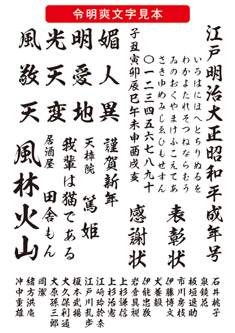 令明爽文字見本
江戸明治大正昭和平成年号
いろはにほへとちりぬるを
わかよたれそつねならむう
ゐのおくやまけふこえてあ
さきゆめみしゑひもせすん
〇一二三四五六七八九十
子丑寅卯辰巳午未申酉戌亥
媚人異
明愛地
光天変
風敬天
表彰状
感謝状
謹賀新年
天樟院 篤姫
我輩は猫である
居酒屋 田舎もん
風林火山
石井桃子
泉鏡花
板垣退助
市川房枝
伊藤博文
犬養毅
伊能忠敬
岩倉具視
上杉謙信
上杉治憲
江崎玲於奈
江戸川乱歩
榎本武揚
大久保利通
大原孫三郎
岡潔
緒方洪庵
沖中重雄